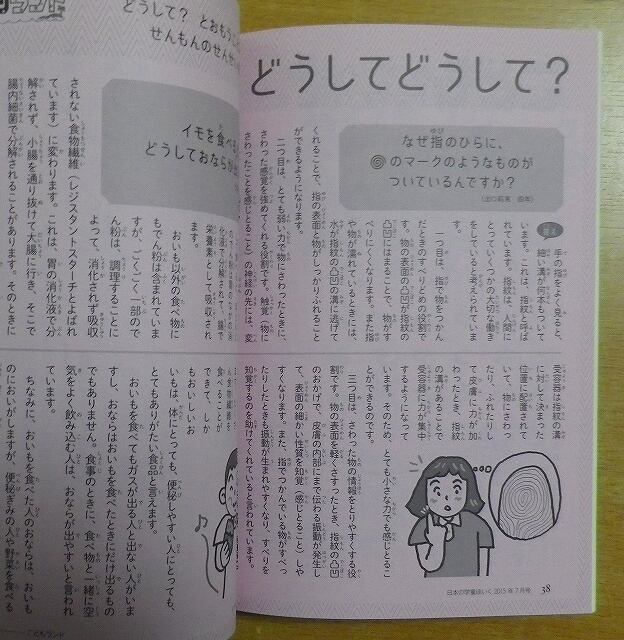 どうしてどうして？
なぜ指のひらに、
のマークのようなものが
ついているんですか？
答え
手の指をよく見ると、
細い溝が何本もついて
います。これは、指紋と呼ば
れています。指紋は、人間に
とっていくつかの大切な働き
をしていると考えられていま
す。
一つ目は、指で物をつかん
だときのすべりどめの役割で
す。物の表面の凸凹が指紋の
凸凹にはまることで、物がす
べりにくくなります。また指
や物が濡れているときには、
水が指紋の凸凹の溝に逃げて
くれることで、指の表面と物がしっかりふれること
ができるようになります。
二つ目は、とても弱い力で物にさわったときに、
さわった感覚を強めてくれる役割です。触覚（物に
さわったことを感じとること）の神経の先には、変
受容器は指紋の溝
に対して決まった
位置に配置されて
いて、物にさわっ
たり、ふれたりし
て皮膚に力が加
わったとき、指紋
の溝があることで
受容器に力が集中
するようになって
います。そのため、とても小さな力でも感じとるこ
とができるのです。
三つ目は、さわった物の情報をとりやすくする役
割です。物の表面を軽くさすったとき、指紋の凸凹
のおかげで、皮膚の内部にまで伝わる振動が発生し
て、表面の細かい性質を知覚（感じとること）しや
すくなります。また、指でつかんでいる物がすべっ
たりしたときも振動が生まれやすくなり、すべりを
知覚するのを助けてくれていると言われています。
日本の学童ほいく 2015年7月号 38
どうして？ とおもうこ
せんもんのせんせ
イモを食べる
どうしておならが出
化液で分解されて、腸で
栄養素として吸収され
ます。
おいも以外の食べ物に
もでん粉は含まれていま
すが、ごく一部ので
ん粉は、調理することに
よって、消化されず吸収
されない食物繊維（レジスタントスターチとよばれ
ています）に変わります。これは、胃の消化液で分
解されず、小腸を通り抜けて大腸に行き、そこで
腸内細菌で分解されることがあります。そのときに
食べることが
できて、しか
もおいしいお
いもは、体にとっても、便秘しやすい人にとっても、
とてもありがたい食品と言えます。
おいもを食べてもガスが出る人と出ない人がいま
すし、おならはおいもを食べたときにだけ出るもの
でもありません。食事のときに、食べ物と一緒に空
気をよく飲み込む人は、おならが出やすいと言われ
ています。
ちなみに、おいもを食べた人のおならは、おいも
のにおいがしますが、便秘ぎみの人や野菜を食べる
こどもランド